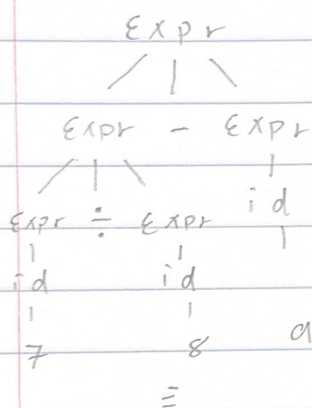 Expr
Expr - Expr
Expr ÷ Expr id
id id
7 8 a
≡